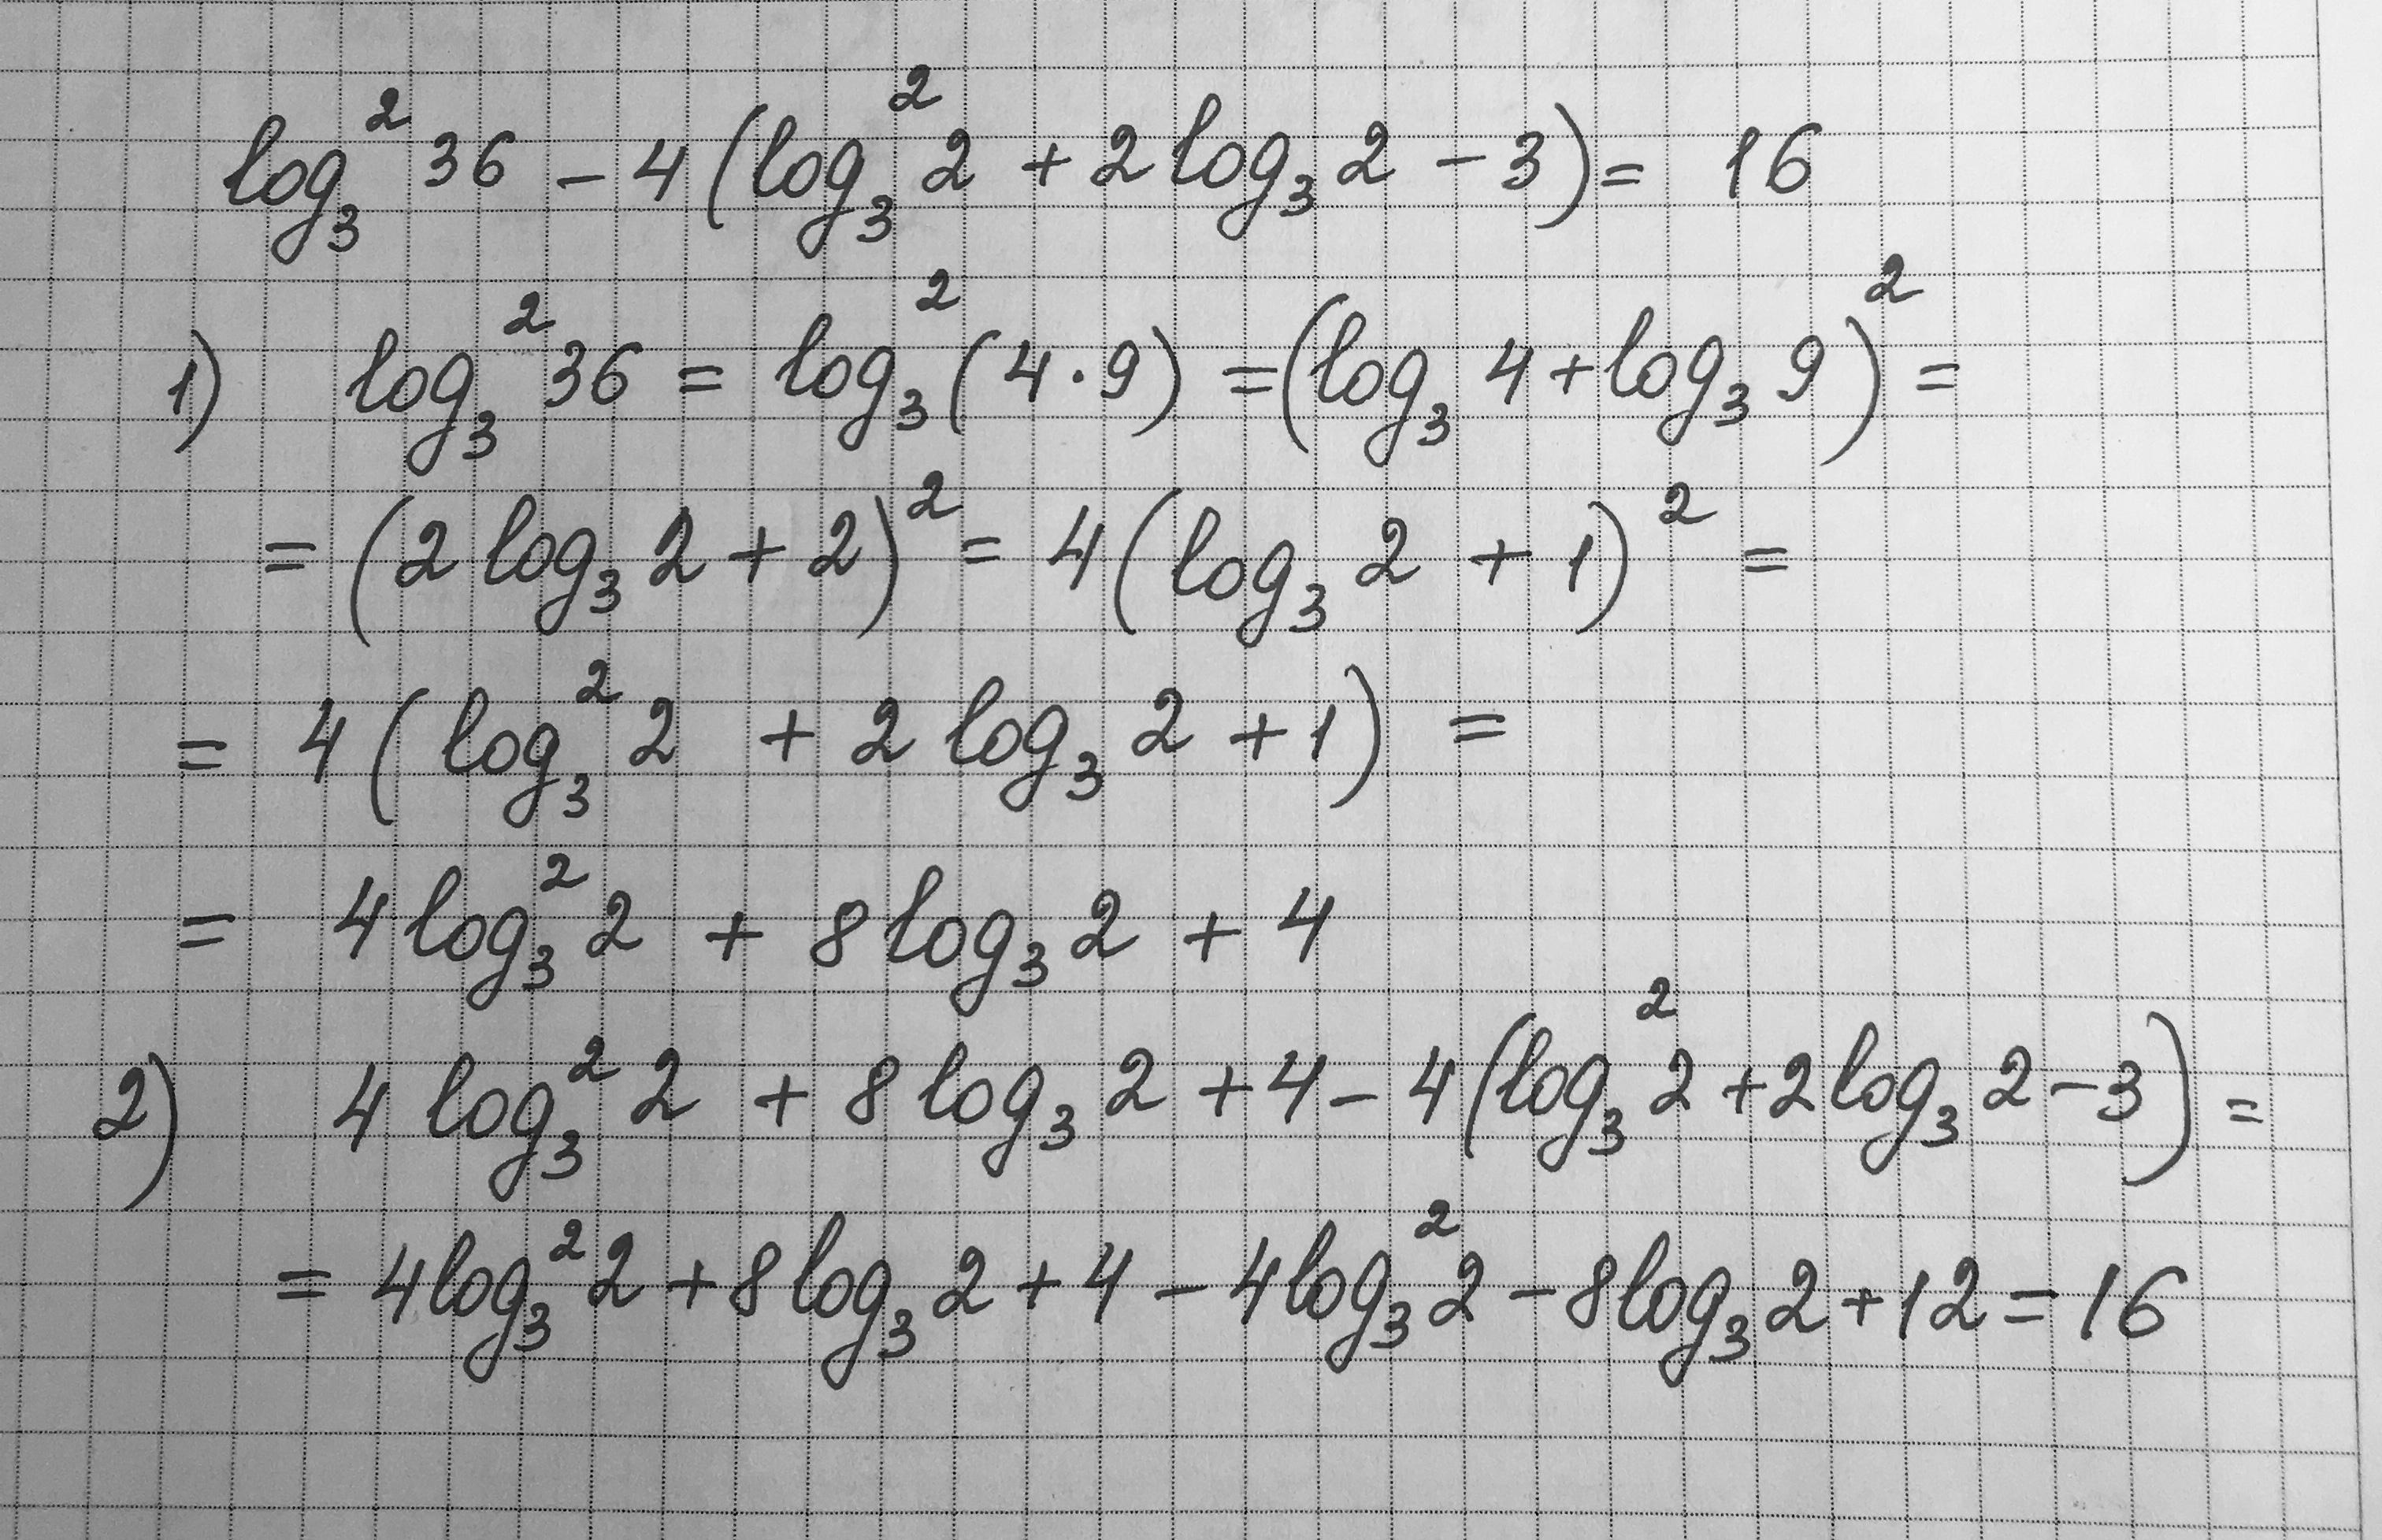 log₃²36 − 4(log₃²2 + 2log₃2 − 3) = 16
1) log₃²36 = log₃²(4·9) = (log₃4 + log₃9)² =
= (2log₃2 + 2)² = 4(log₃2 + 1)² =
= 4(log₃²2 + 2log₃2 + 1) =
= 4log₃²2 + 8log₃2 + 4
2) 4log₃²2 + 8log₃2 + 4 − 4(log₃²2 + 2log₃2 − 3) =
= 4log₃²2 + 8log₃2 + 4 − 4log₃²2 − 8log₃2 + 12 = 16